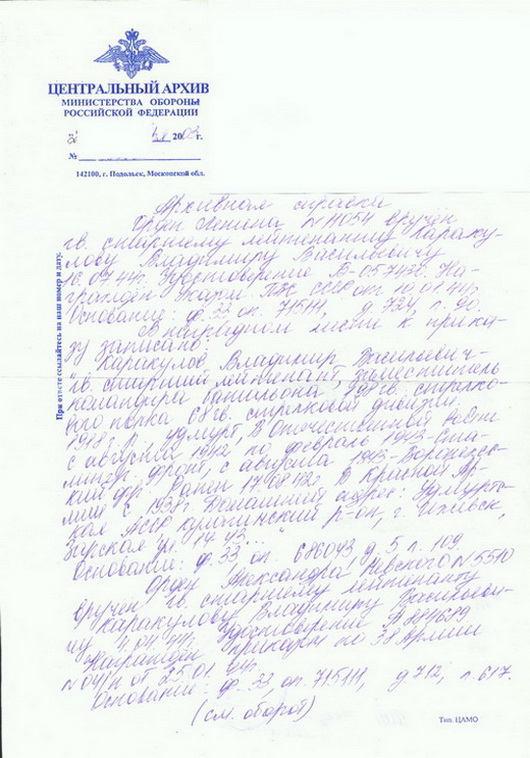 ЦЕНТРАЛЬНЫЙ АРХИВ
МИНИСТЕРСТВА ОБОРОНЫ
РОССИЙСКОЙ ФЕДЕРАЦИИ
2003 г.
№
142100, г. Подольск, Московской обл.
При ответе ссылайтесь на наш номер и дату.
Архивная справка
Орден Ленина N 11054 вручён
гв. старшему лейтенанту Караку-
лову Владимиру Васильевичу
16.07.44г. Удостоверение В-057430. На-
гражден Указом ПВС СССР от 10.01.44г.
Основание: ф.33 оп. 715111, д.724, л. 90.
В наградном листе к прика-
зу записано:
Каракулов Владимир Васильевич -
гв. старший лейтенант, заместитель
командира батальона 198 гв. стрелко-
вого полка 68 гв. стрелковой дивизии.
1918 г.р., удмурт, В Отечественной войне
с августа 1942 по февраль 1943 - Ста-
лингр. фронт, с августа 1943 - Воронежс-
кий фр. Ранен 17.08.42г. В Красной Ар-
мии с 1938г. Домашний адрес: Удмуртс-
кая АССР р-он, г. Ижевск,
ул. 14-43..."
Основание: ф. 33 оп. 686043 д. 5 л. 109.
Орден Александра Невского N 5510
вручен гв. старшему лейтенанту
Каракулову Владимиру Васильеви-
чу 4.04.44г. Удостоверение А 884689
Награжден приказом по 38 Армии
N 04/н от 25.01.44г.
Основание: ф. 33, оп. 715111, д 712, л. 617.
(см. оборот)
Тип. ЦАМО